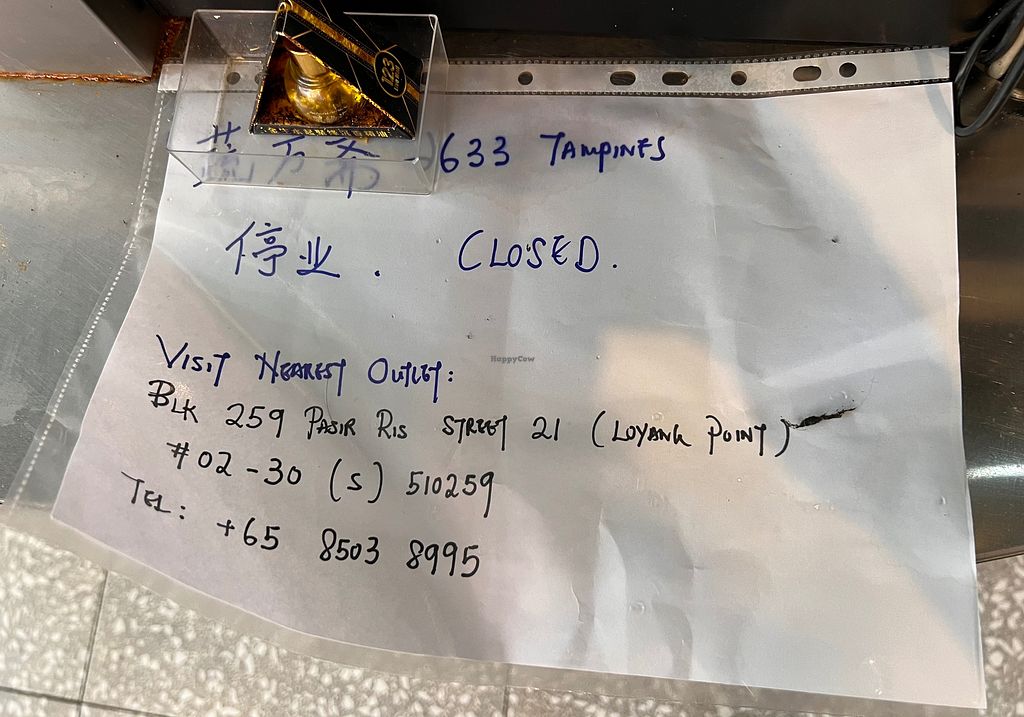 123
万帝 @633 TAMPINES
停业. CLOSED.
HappyCow
VISIT NEAREST OUTLET:
BLK 259 PASIR RIS STREET 21 (LOYANG POINT)
#02-30 (S) 510259
TEL: +65 8503 8995